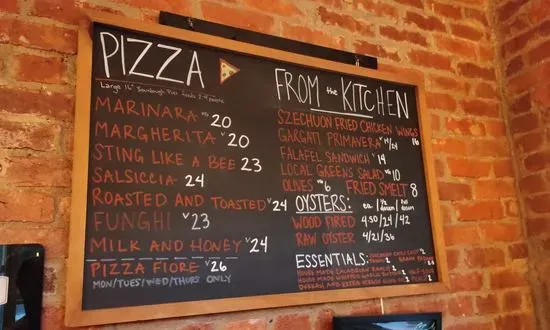 PIZZA
Large 16" Sourdough Pies
MARINARA VG 20
MARGHERITA V 20
STING LIKE A BEE 23
SALSICCIA 24
ROASTED AND TOASTED V 24
FUNGHI V 23
MILK AND HONEY V 24
PIZZA FIORE V 26
MON/TUES/WED/THURS ONLY
FROM the KITCHEN
SZECHUON FRIED CHICKEN WINGS 16
GARGATI PRIMAVERA V 14/24
FALAFEL SANDWICH V 14
LOCAL GREENS SALAD VG 10
OLIVES VG 6 FRIED SMELT 8
OYSTERS: ea / 1/2 dozen /
WOOD FIRED 4.50/24/42
RAW OYSTER 4/21/36
ESSENTIALS:
HOUSE MADE CALABRIAN RANCH
HOUSE MADE WHIPPED GARLIC
AND EXTRA